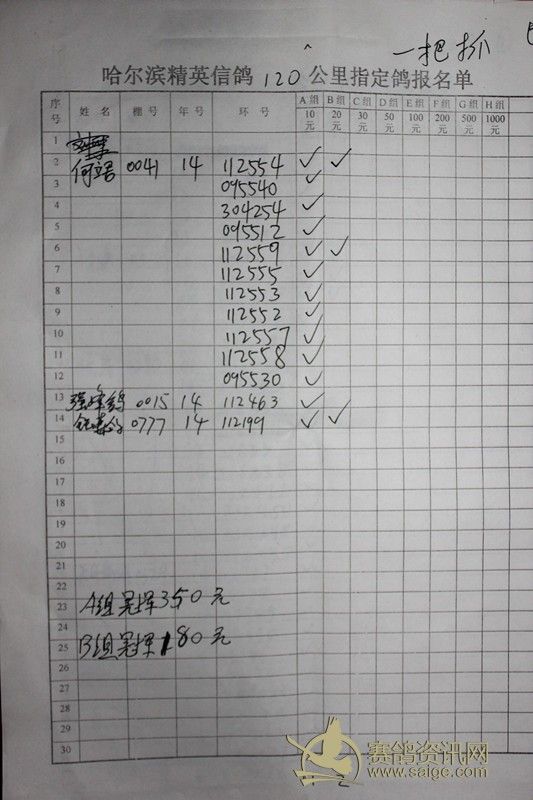 一把抓
哈尔滨精英信鸽 120 公里指定鸽报名单
序号 姓名 棚号 年号 环号 A组10元 B组20元 C组30元 D组50元 E组100元 F组200元 G组500元 H组1000元
1
2 0041 14 112554 ✓ ✓
3 095540 ✓
4 304254 ✓
5 095512 ✓
6 112559 ✓ ✓
7 112555 ✓
8 112553 ✓
9 112552 ✓
10 112557 ✓
11 112558 ✓
12 095530 ✓
13 0015 14 112463 ✓
14 0777 14 112199 ✓ ✓
15
16
17
18
19
20
21
22
23 A组 350元
24
25 B组 180元
26
27
28
29
30
赛鸽资讯网
www.saige.com